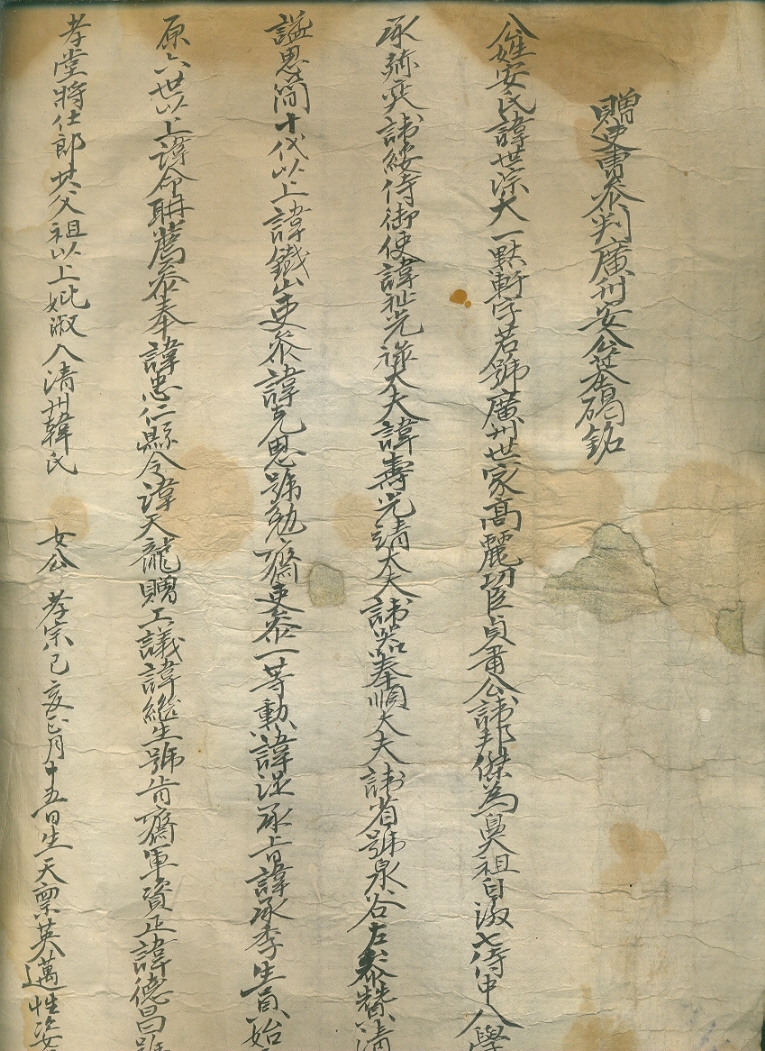 贈吏曹參判廣州安公墓碣銘
公姓安氏諱世淙大一點漸字若號廣州世家高麗功臣貞肅公諱邦傑為鼻祖自後七侍中八學
承弥奕諱綏侍御使諱祉光祿大夫諱壽光靖大夫諱器奉順大夫諱省號泉谷左參贊清
謚思簡十代以上諱鐵山吏參諱克思號勉齋吏參一等勳諱 承旨諱承季生員始
原六世以上諱命聃薦參奉諱忠仁縣令諱天龍贈工議諱継生號肯齋軍資正諱德昌號
孝堂將仕郎 父祖以上妣淑人清州韓氏 女公 孝宗己亥正月十五日生天稟英邁性姿